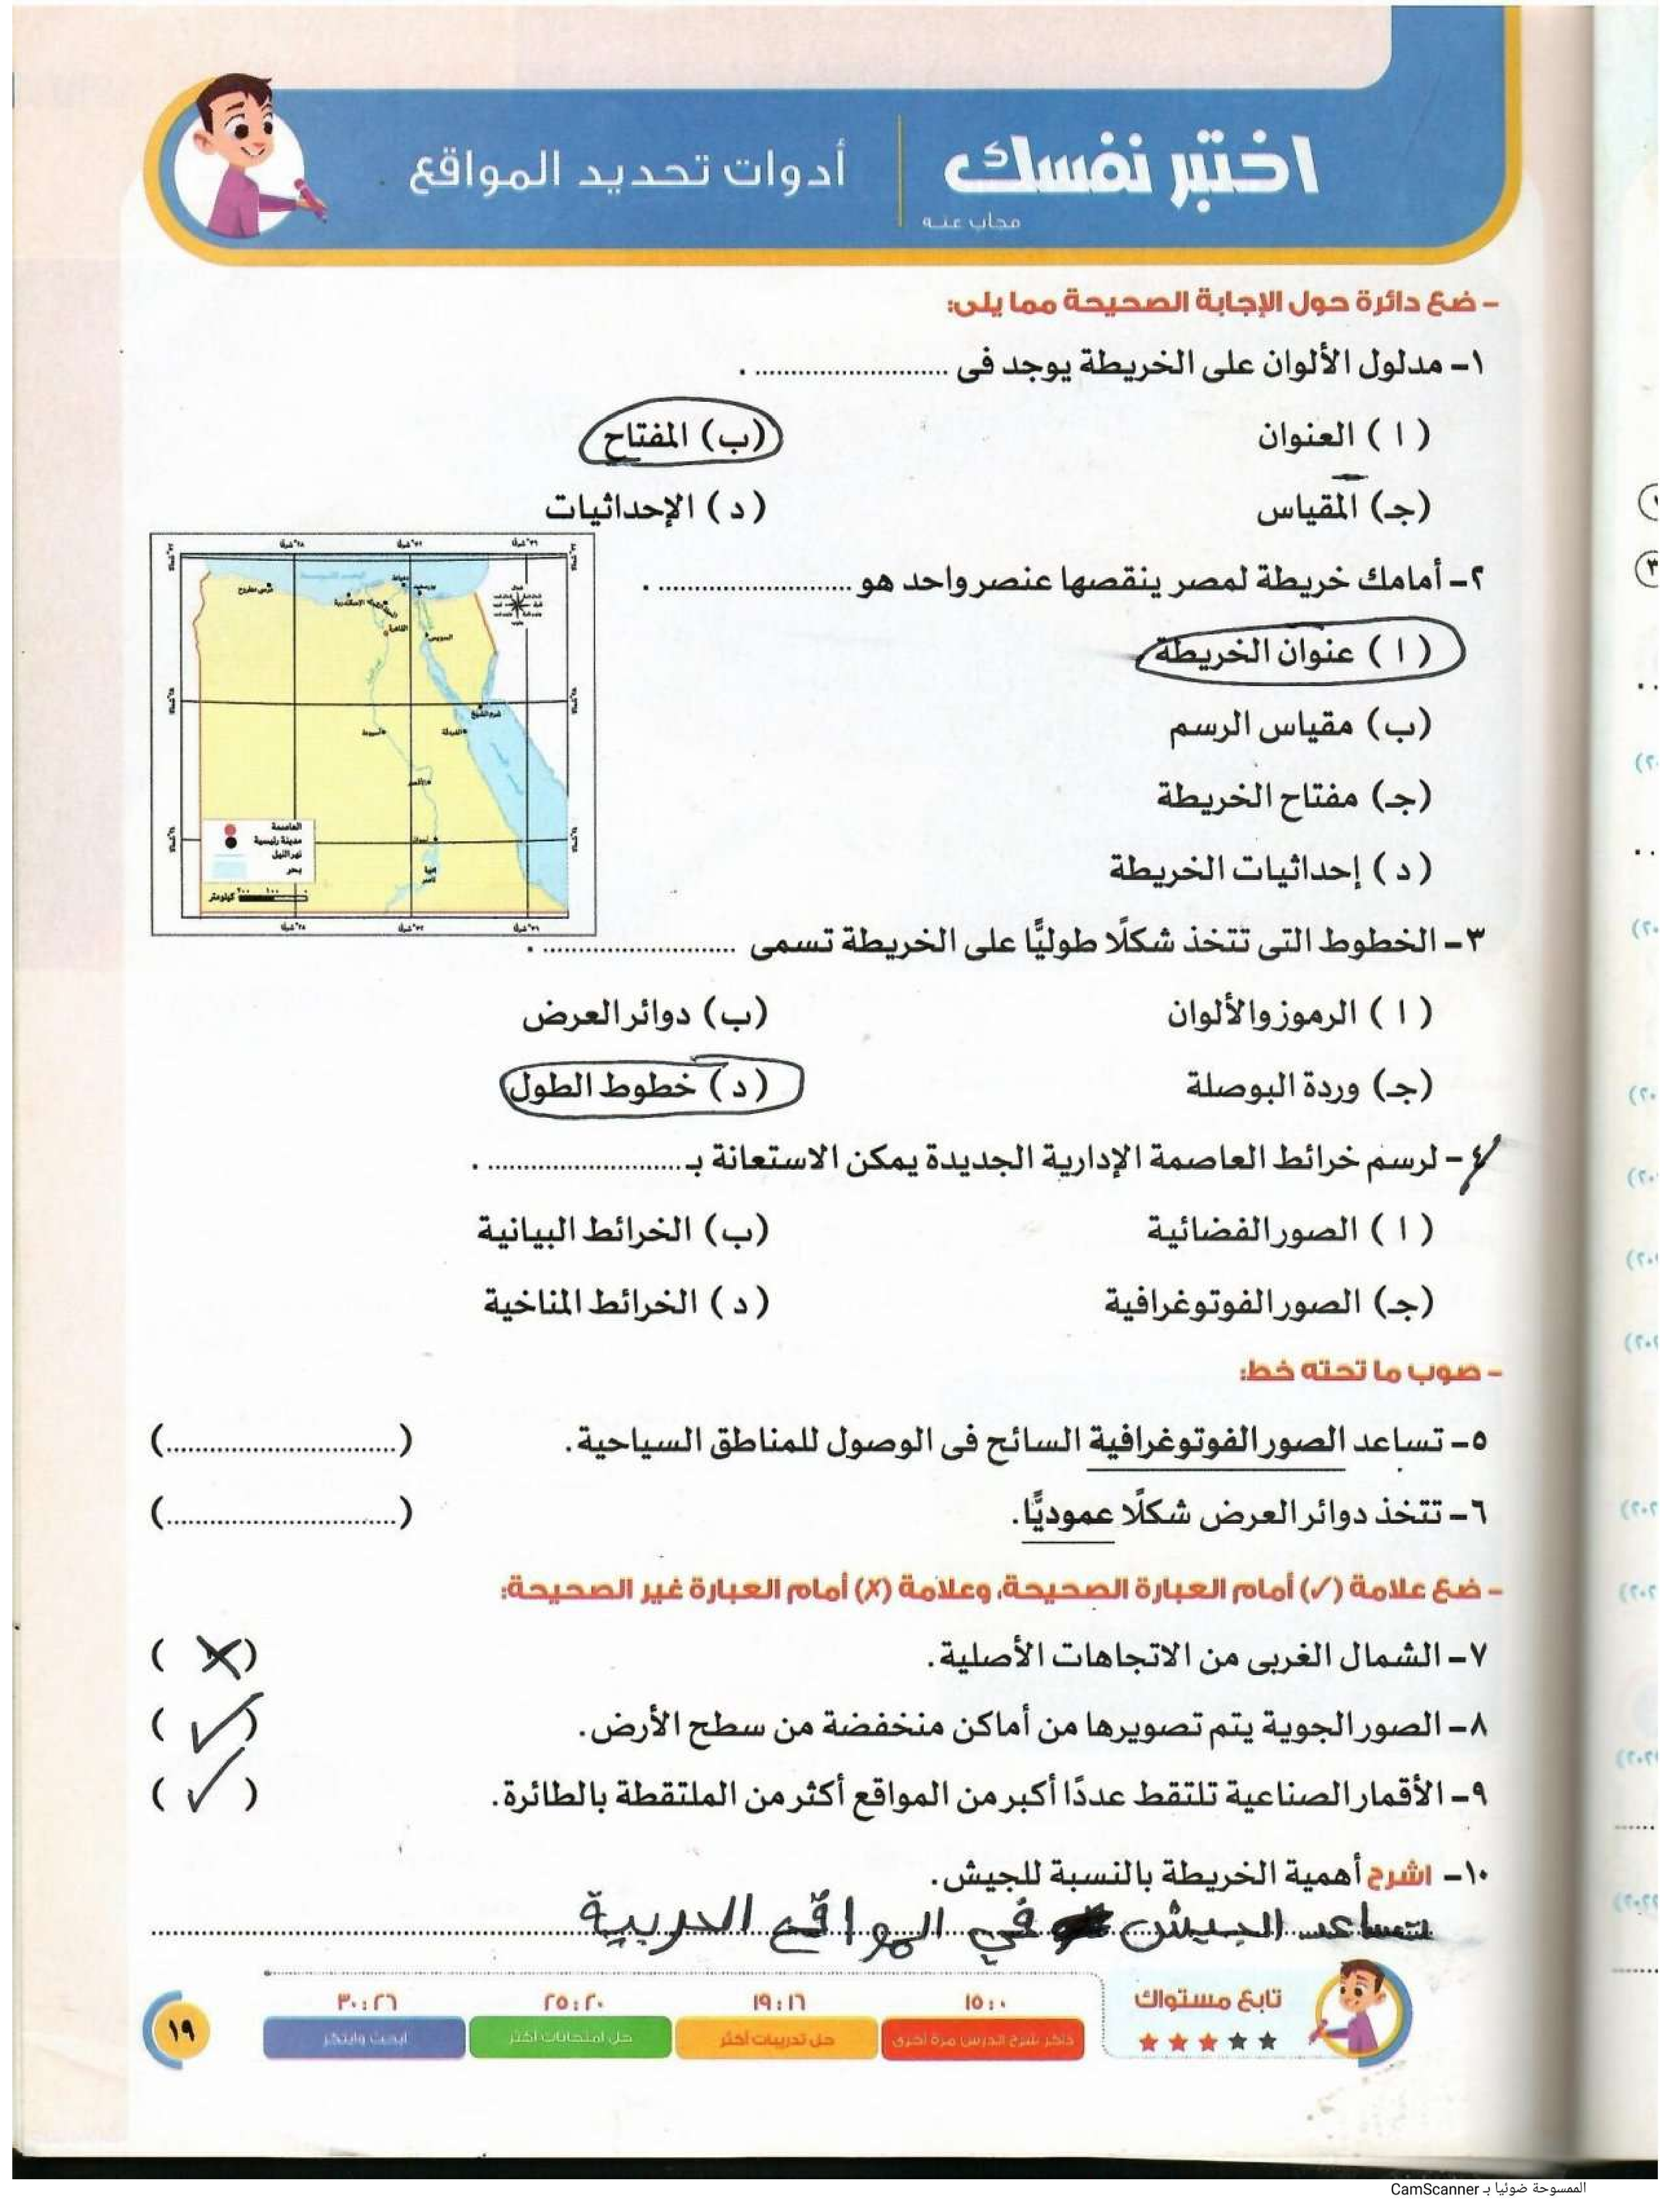 اختبر نفسك
أدوات تحديد المواقع
مجاب عنه
- ضع دائرة حول الإجابة الصحيحة مما يلى:
١- مدلول الألوان على الخريطة يوجد فى .......................... .
( ا ) العنوان
(ب) المفتاح
(جـ) المقياس
( د ) الإحداثيات
٢- أمامك خريطة لمصر ينقصها عنصر واحد هو .......................... .
( ا ) عنوان الخريطة
(ب) مقياس الرسم
(جـ) مفتاح الخريطة
( د ) إحداثيات الخريطة
مرسى مطروح
الإسكندرية
دمياط
بورسعيد
القاهرة
السويس
شرم الشيخ
الغردقة
أسيوط
الأقصر
أسوان
العاصمة
مدينة رئيسية
نهر النيل
بحر
٠ ١٠٠ ٢٠٠ كيلومتر
٣- الخطوط التى تتخذ شكلًا طوليًّا على الخريطة تسمى .......................... .
( ا ) الرموز والألوان
(ب) دوائر العرض
(جـ) وردة البوصلة
( د ) خطوط الطول
٤- لرسم خرائط العاصمة الإدارية الجديدة يمكن الاستعانة بـ .......................... .
( ا ) الصور الفضائية
(ب) الخرائط البيانية
(جـ) الصور الفوتوغرافية
( د ) الخرائط المناخية
- صوب ما تحته خط:
٥- تساعد الصور الفوتوغرافية السائح فى الوصول للمناطق السياحية. (..............................)
٦- تتخذ دوائر العرض شكلًا عموديًّا. (..............................)
- ضع علامة (✓) أمام العبارة الصحيحة، وعلامة (✗) أمام العبارة غير الصحيحة:
٧- الشمال الغربى من الاتجاهات الأصلية. (✗)
٨- الصور الجوية يتم تصويرها من أماكن منخفضة من سطح الأرض. (✓)
٩- الأقمار الصناعية تلتقط عددًا أكبر من المواقع أكثر من الملتقطة بالطائرة. (✓)
١٠- اشرح أهمية الخريطة بالنسبة للجيش.
تساعد الجيش في المواقع الحربية
تابع مستواك
٠ : ١٥
ذاكر شرح الدرس مرة أخرى
١٦ : ١٩
حل تدريبات أكثر
٢٠ : ٢٥
حل امتحانات أكثر
٢٦ : ٣٠
ابحث وابتكر
١٩
الممسوحة ضوئيا بـ CamScanner